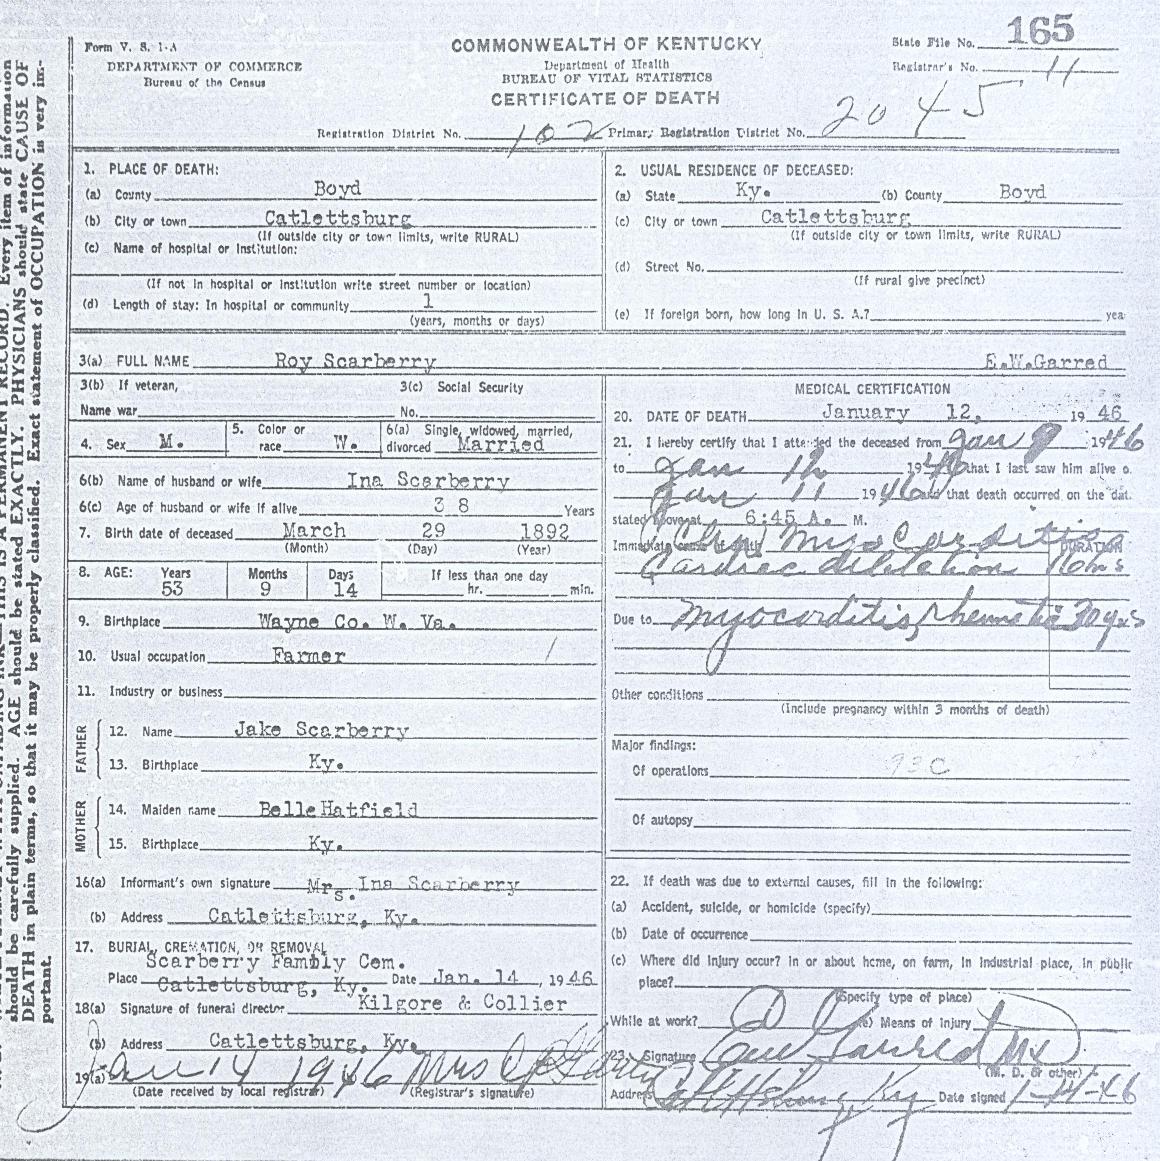 165
Form V. S. 1-A
COMMONWEALTH OF KENTUCKY
State File No.
DEPARTMENT OF COMMERCE
Department of Health
Registrar's No. 11
Bureau of the Census
BUREAU OF VITAL STATISTICS
CERTIFICATE OF DEATH
Registration District No. 102 Primary Registration District No. 2045
1. PLACE OF DEATH:
(a) County Boyd
(b) City or town Catlettsburg
(If outside city or town limits, write RURAL)
(c) Name of hospital or Institution:
(If not in hospital or institution write street number or location)
(d) Length of stay: In hospital or community 1
(years, months or days)
2. USUAL RESIDENCE OF DECEASED:
(a) State Ky. (b) County Boyd
(c) City or town Catlettsburg
(If outside city or town limits, write RURAL)
(d) Street No.
(If rural give precinct)
(e) If foreign born, how long in U. S. A.? yea
3(a) FULL NAME Roy Scarberry E.W.Garred
3(b) If veteran, 3(c) Social Security
Name war No.
4. Sex M. 5. Color or race W. 6(a) Single, widowed, married, divorced Married
6(b) Name of husband or wife Ina Scarberry
6(c) Age of husband or wife if alive 38 Years
7. Birth date of deceased March 29 1892
(Month) (Day) (Year)
8. AGE: Years Months Days If less than one day
53 9 14 hr. min.
9. Birthplace Wayne Co. W. Va.
10. Usual occupation Farmer
11. Industry or business
FATHER
12. Name Jake Scarberry
13. Birthplace Ky.
MOTHER
14. Maiden name Belle Hatfield
15. Birthplace Ky.
16(a) Informant's own signature Mrs. Ina Scarberry
(b) Address Catlettsburg, Ky.
17. BURIAL, CREMATION, OR REMOVAL
Scarberry Family Cem.
Place Catlettsburg, Ky. Date Jan. 14, 1946
18(a) Signature of funeral director Kilgore & Collier
(b) Address Catlettsburg, Ky.
19(a) Jan 14 1946 Mrs
(Date received by local registrar) (Registrar's signature)
MEDICAL CERTIFICATION
20. DATE OF DEATH January 12, 1946
21. I hereby certify that I attended the deceased from Jan 9 1946
to Jan 12 1946 that I last saw him alive o.
Jan 11 1946 and that death occurred on the dat.
stated above at 6:45 A. M.
Immediate cause of death Myocarditis DURATION
Cardiac dilation
Due to Myocarditis, rhematic 30 yrs
Other conditions
(Include pregnancy within 3 months of death)
Major findings:
Of operations 93C
Of autopsy
22. If death was due to external causes, fill in the following:
(a) Accident, suicide, or homicide (specify)
(b) Date of occurrence
(c) Where did injury occur? In or about home, on farm, in industrial place, in public
place?
(Specify type of place)
While at work? (e) Means of Injury
23. Signature Garred MD
(M. D. or other)
Address Catlettsburg Ky Date signed 1-14-46
information
Every item of
THIS IS A PERMANENT RECORD.
should be carefully supplied. AGE should be stated EXACTLY. PHYSICIANS should state CAUSE OF
DEATH in plain terms, so that it may be properly classified. Exact statement of OCCUPATION is very im-
portant.